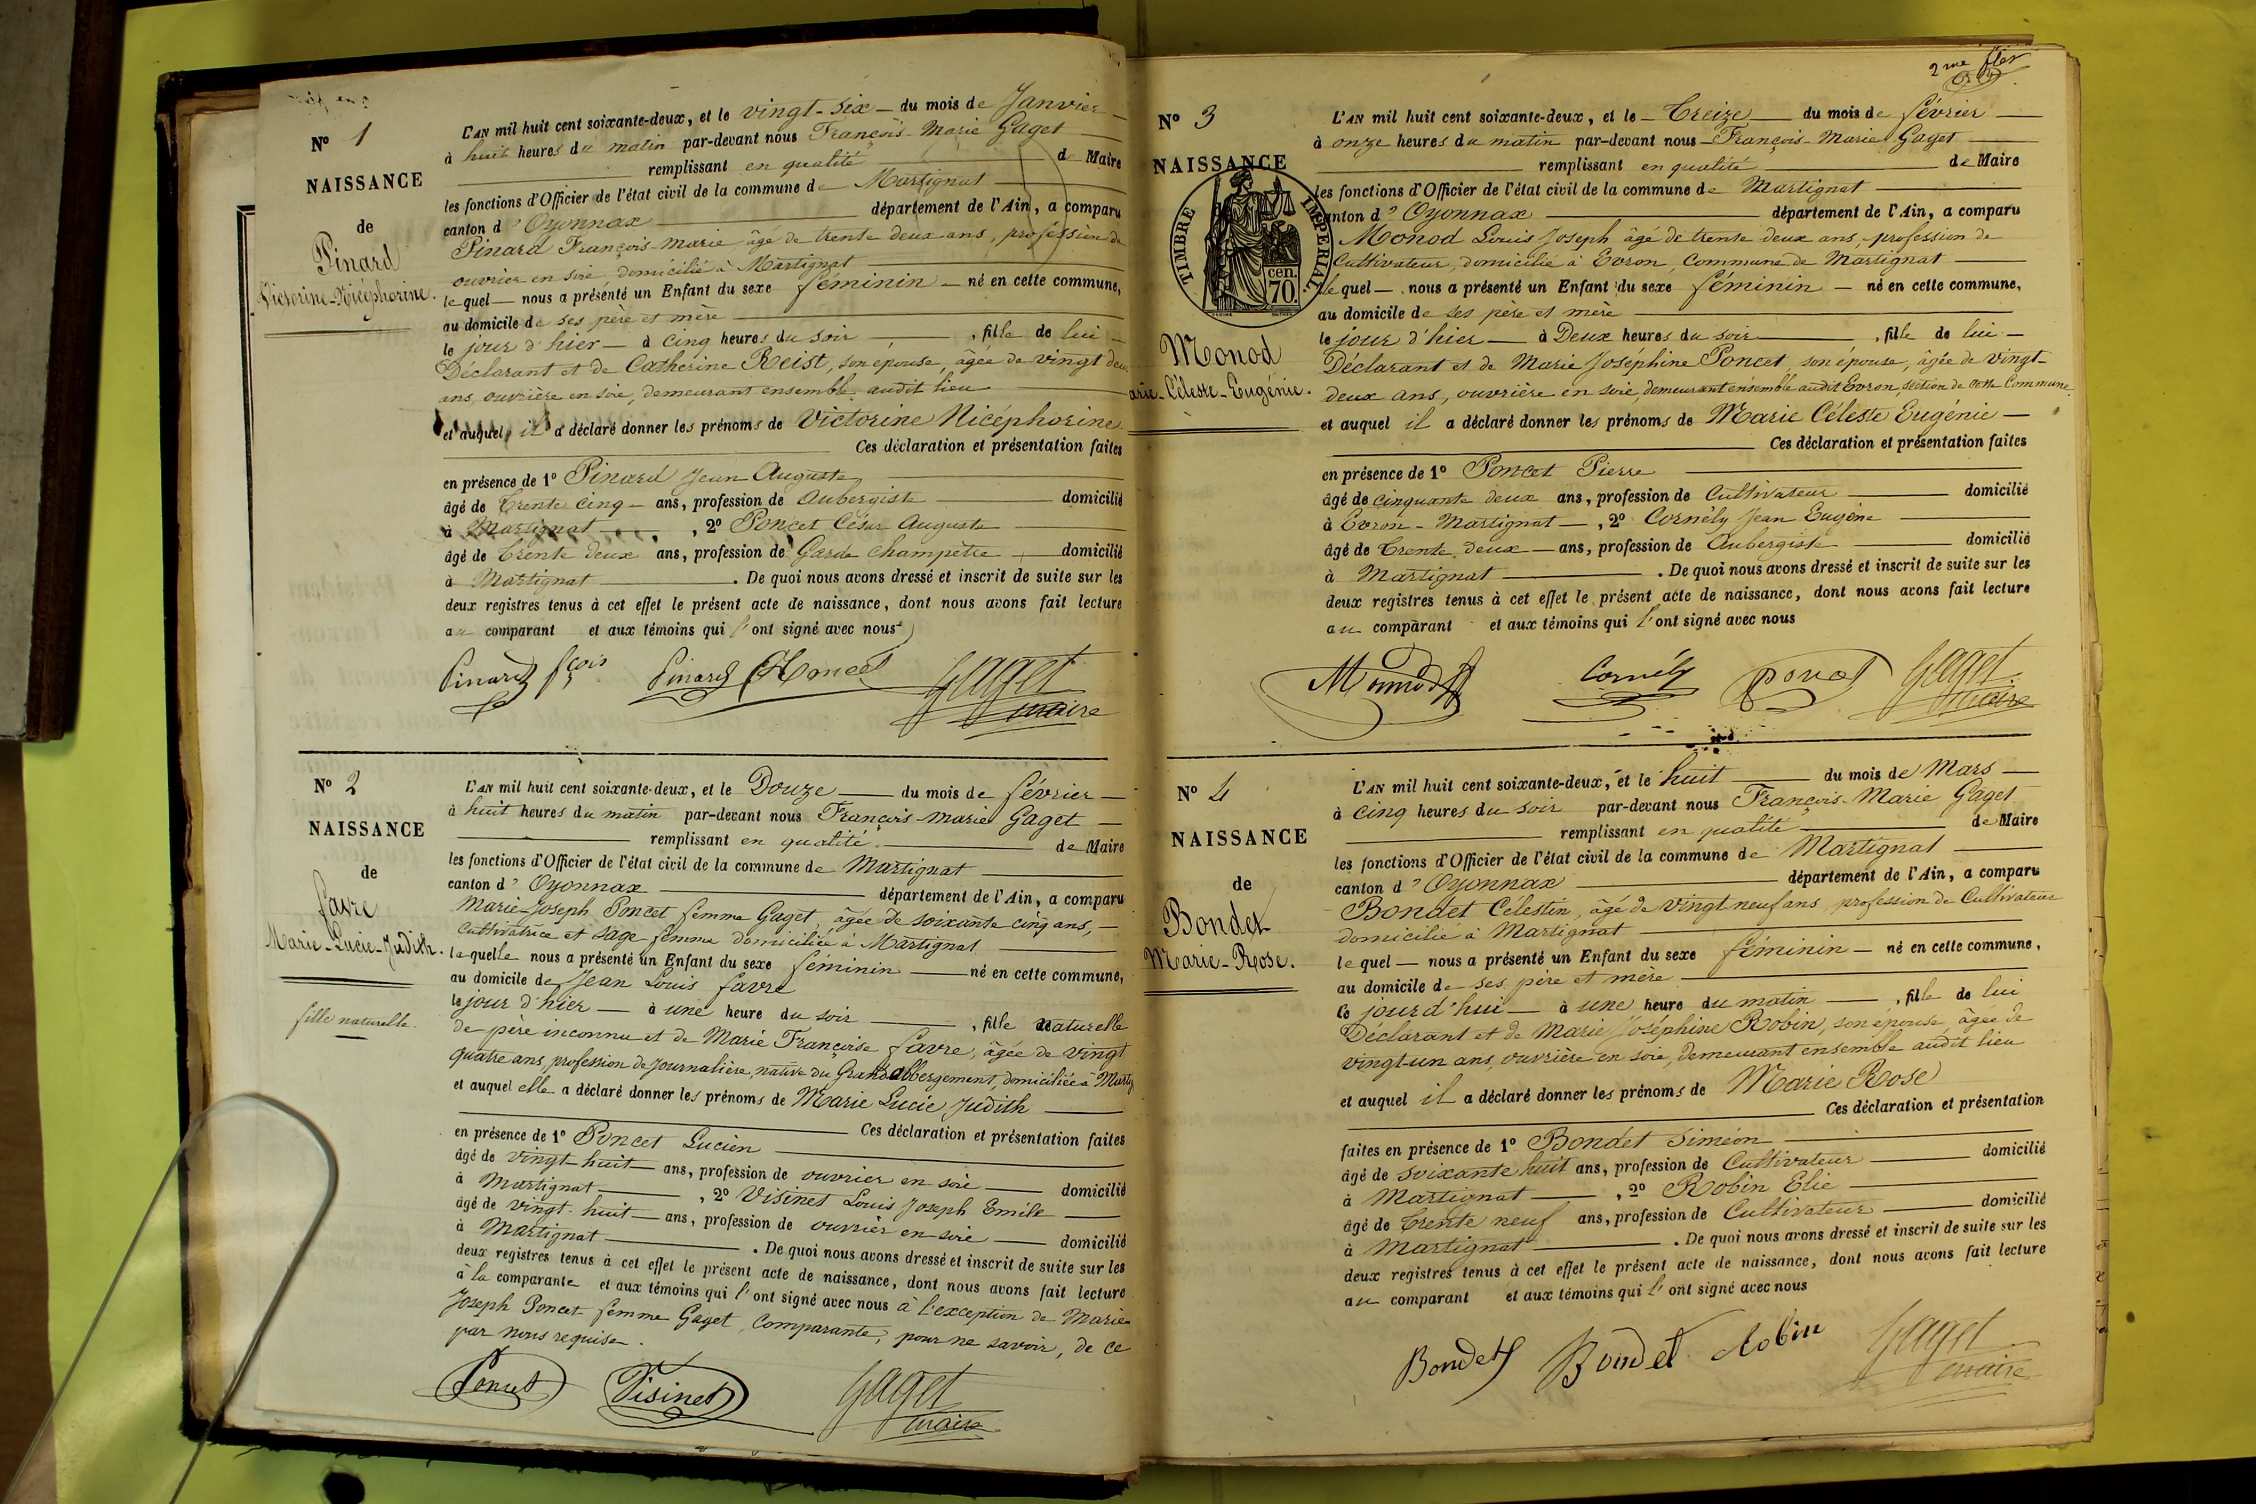 No 1
NAISSANCE
de
Pinard
Victorine-Nicéphorine.
L'AN mil huit cent soixante-deux, et le vingt-six du mois de Janvier
à huit heures du matin par-devant nous François-Marie Gaget
remplissant en qualité de Maire
les fonctions d'Officier de l'état civil de la commune de Martignat
canton d'Oyonnax département de l'Ain, a comparu
Pinard François-marie âgé de trente deux ans, profession de
ouvrier en soie domicilié à Martignat
lequel nous a présenté un Enfant du sexe féminin né en cette commune,
au domicile de ses père et mère
le jour d'hier à cinq heures du soir, fille de lui
Déclarant et de Catherine Reist, son épouse, âgée de vingt deux
ans, ouvrière en soie, demeurant ensemble audit lieu
et auquel il a déclaré donner les prénoms de Victorine Nicéphorine
Ces déclaration et présentation faites
en présence de 1° Pinard Jean Auguste
âgé de Trente cinq ans, profession de Aubergiste domicilié
à Martignat, 2° Poncet César Auguste
âgé de Trente deux ans, profession de Garde champêtre domicilié
à Martignat. De quoi nous avons dressé et inscrit de suite sur les
deux registres tenus à cet effet le présent acte de naissance, dont nous avons fait lecture
au comparant et aux témoins qui l'ont signé avec nous
Pinard fçois Pinard Poncet Gaget
maire
No 2
NAISSANCE
de
favre
Marie-Lucie-Judith.
fille naturelle.
L'AN mil huit cent soixante-deux, et le Douze du mois de février
à huit heures du matin par-devant nous François-marie Gaget
remplissant en qualité de Maire
les fonctions d'Officier de l'état civil de la commune de Martignat
canton d'Oyonnax département de l'Ain, a comparu
Marie-Joseph Poncet femme Gaget, âgée de soixante cinq ans,
Cultivatrice et sage femme domiciliée à Martignat
laquelle nous a présenté un Enfant du sexe féminin né en cette commune,
au domicile de Jean Louis favre
le jour d'hier à une heure du soir, fille naturelle
de père inconnu et de Marie Françoise favre, âgée de vingt
quatre ans, profession de Journalière, native du Grand abbergement, domiciliée à Martig
et auquel elle a déclaré donner les prénoms de Marie Lucie Judith
Ces déclaration et présentation faites
en présence de 1° Poncet Lucien
âgé de vingt-huit ans, profession de ouvrier en soie domicilié
à Martignat, 2° Visinet Louis Joseph Emile
âgé de vingt-huit ans, profession de ouvrier en soie domicilié
à Martignat. De quoi nous avons dressé et inscrit de suite sur les
deux registres tenus à cet effet le présent acte de naissance, dont nous avons fait lecture
à la comparante et aux témoins qui l'ont signé avec nous à l'exception de Marie
Joseph Poncet femme Gaget, comparante, pour ne savoir, de ce
par nous requise.
Poncet Visinet Gaget
maire
2me
No 3
NAISSANCE
TIMBRE IMPERIAL.
cen.
70.
Monod
arie-Céleste-Eugénie.
L'AN mil huit cent soixante-deux, et le Treize du mois de février
à onze heures du matin par-devant nous François-Marie Gaget
remplissant en qualité de Maire
les fonctions d'Officier de l'état civil de la commune de Martignat
canton d'Oyonnax département de l'Ain, a comparu
Monod Louis Joseph âgé de trente deux ans, profession de
Cultivateur, domicilié à Evron, Commune de Martignat
lequel nous a présenté un Enfant du sexe féminin né en cette commune,
au domicile de ses père et mère
le jour d'hier à Deux heures du soir, fille de lui
Déclarant et de Marie Joséphine Poncet, son épouse, âgée de vingt-
deux ans, ouvrière en soie, demeurant ensemble audit Evron, section de cette Commune
et auquel il a déclaré donner les prénoms de Marie Céleste Eugénie
Ces déclaration et présentation faites
en présence de 1° Poncet Pierre
âgé de cinquante deux ans, profession de Cultivateur domicilié
à Evron-Martignat, 2° Cornély Jean Eugène
âgé de Trente deux ans, profession de Aubergiste domicilié
à Martignat. De quoi nous avons dressé et inscrit de suite sur les
deux registres tenus à cet effet le présent acte de naissance, dont nous avons fait lecture
au comparant et aux témoins qui l'ont signé avec nous
Monnod Cornély Gaget
maire
No 4
NAISSANCE
de
Bondet
Marie-Rose.
L'AN mil huit cent soixante-deux, et le huit du mois de Mars
à cinq heures du soir par-devant nous François-Marie Gaget
remplissant en qualité de Maire
les fonctions d'Officier de l'état civil de la commune de Martignat
canton d'Oyonnax département de l'Ain, a comparu
Bondet Célestin, âgé de vingt neuf ans, profession de Cultivateur
domicilié à Martignat
lequel nous a présenté un Enfant du sexe féminin né en cette commune,
au domicile de ses père et mère
ce jour d'hui à une heure du matin, fille de lui
Déclarant et de Marie Joséphine Robin, son épouse, âgée de
vingt-un ans, ouvrière en soie, demeurant ensemble audit lieu
et auquel il a déclaré donner les prénoms de Marie Rose
Ces déclaration et présentation
faites en présence de 1° Bondet Siméon
âgé de soixante huit ans, profession de Cultivateur domicilié
à Martignat, 2° Robin Elie
âgé de Trente neuf ans, profession de Cultivateur domicilié
à Martignat. De quoi nous avons dressé et inscrit de suite sur les
deux registres tenus à cet effet le présent acte de naissance, dont nous avons fait lecture
au comparant et aux témoins qui l'ont signé avec nous
Bondet Bondet Robin Gaget
maire